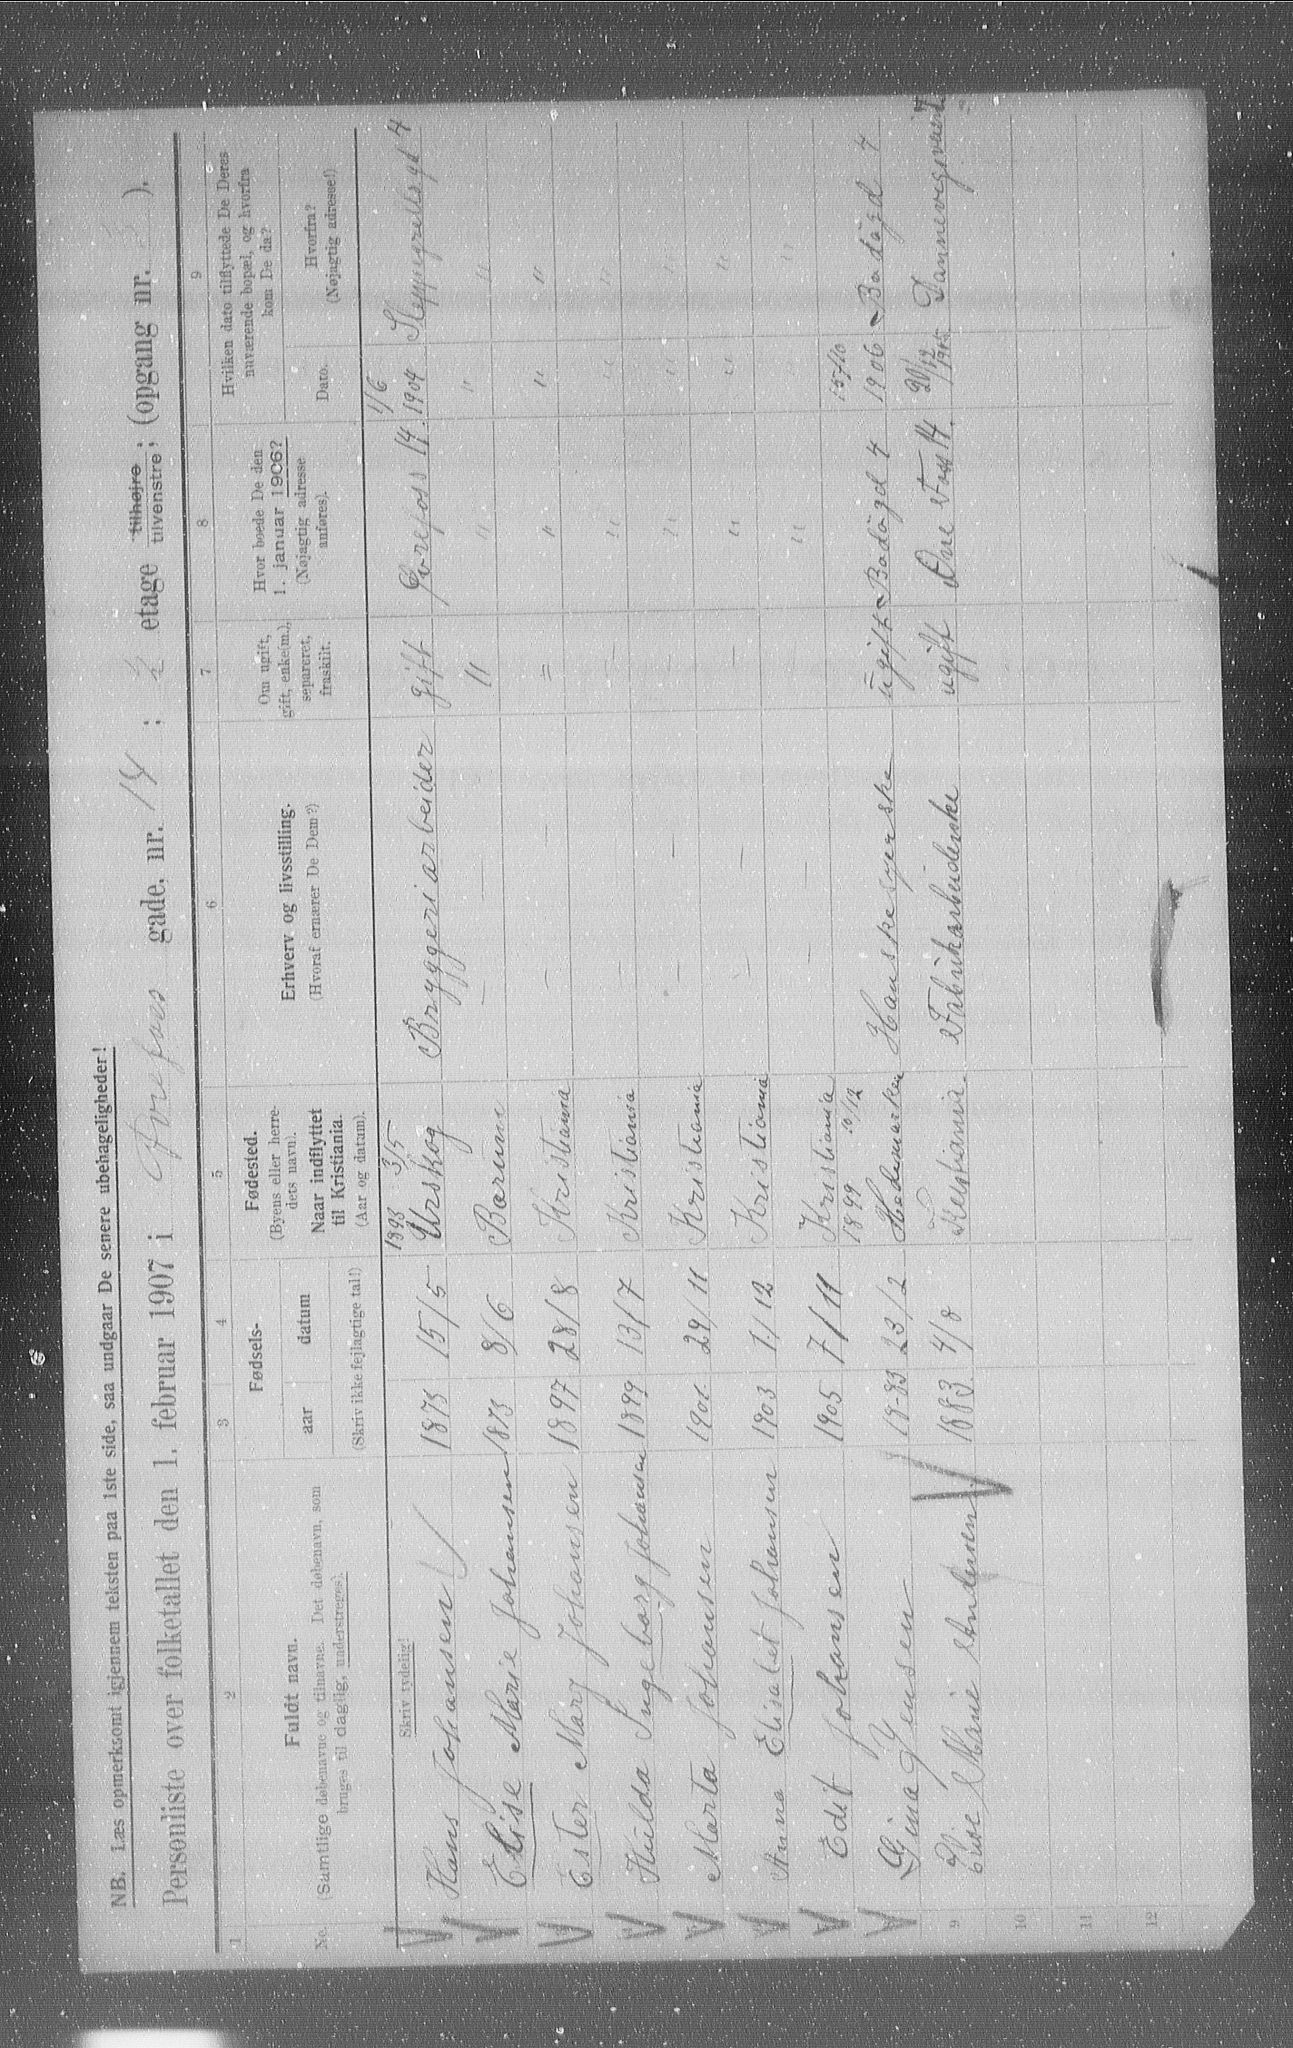 NB. Læs opmerksomt igjennem teksten paa 1ste side, saa undgaar De senere ubehageligheder!
Personliste over folketallet den 1. februar 1907 i Forefoss gade, nr. 14 ; 2 etage tilhøjre, tilvenstre; (opgang nr. ).
1 2 3 4 5 6 7 8 9
No. Fuldt navn. (Samtlige døbenavne og tilnavne. Det døbenavn, som bruges til daglig, understreges).
Fødsels- aar datum (Skriv ikke fejlagtige tal!)
Fødested. (Byens eller herredets navn). Naar indflyttet til Kristiania. (Aar og datum).
Erhverv og livsstilling. (Hvoraf ernærer De Dem?)
Om ugift, gift, enke(m.), separeret, fraskilt.
Hvor boede De den 1. januar 1906? (Nøjagtig adresse anføres).
Hvilken dato tilflyttede De Deres nuværende bopæl, og hvorfra kom De da? Dato. Hvorfra? (Nøjagtig adresse!)
Skriv tydelig!
Hans Johansen 1873 15/5 1898 3/5 Urskog Bryggeriarbeider gift Forefoss 14. 1/6 1904 4
Elise Marie Johansen 1873 8/6 Bærum — " " " "
Ester Mary Johansen 1897 28/8 Kristiania — — " " " "
Hulda Ingeborg Johansen 1899 13/7 Kristiania — — — " " "
Marta Johansen 1901 29/11 Kristiania — — — " " "
Anna Elisabet Johansen 1903 1/12 Kristiania — — — " " "
Edit Johansen 1905 7/11 Kristiania — — — " " "
Gina Jensen 18-83 23/2 1899 10/12 Hedemarken Hanskesyerske ugift 1906
9 Marie Andersen 1883 4/8 Kristiania. Fabrikarbeiderske ugift 14.
10
11
12